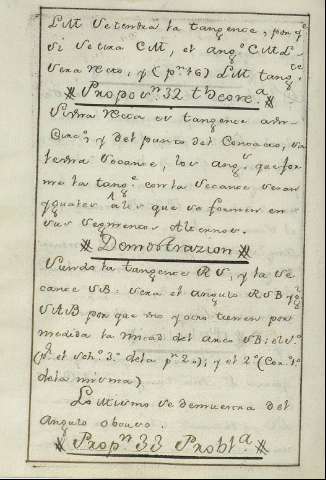 LM se tendrá la tangence, por q.e
si se tira CM, el ang.o CML
sera recto, y (p.n 16) LM tang.e
Propos.n 32 theore.a
Si una recta es tangence a un
y del punto del Contacto, se
secance, los ang.s que for
ma la tang.e con la secance seran
yguales a los que se formen en
sus segmentos Alternos.
Demostrazion
Siendo la tangence RS, y la se
cance SB: sera el angulo RSB yg.l
SAB por que uno y otro tienen por
medida la mitad del arco SB: el 1.o
(p.r el sch.o 3.o de la p.n 20); y el 2.o (Cor.o 1.o
de la misma)
Lo mismo se demuestra del
Angulo obtuso.
Prop.n 33 Probl.a